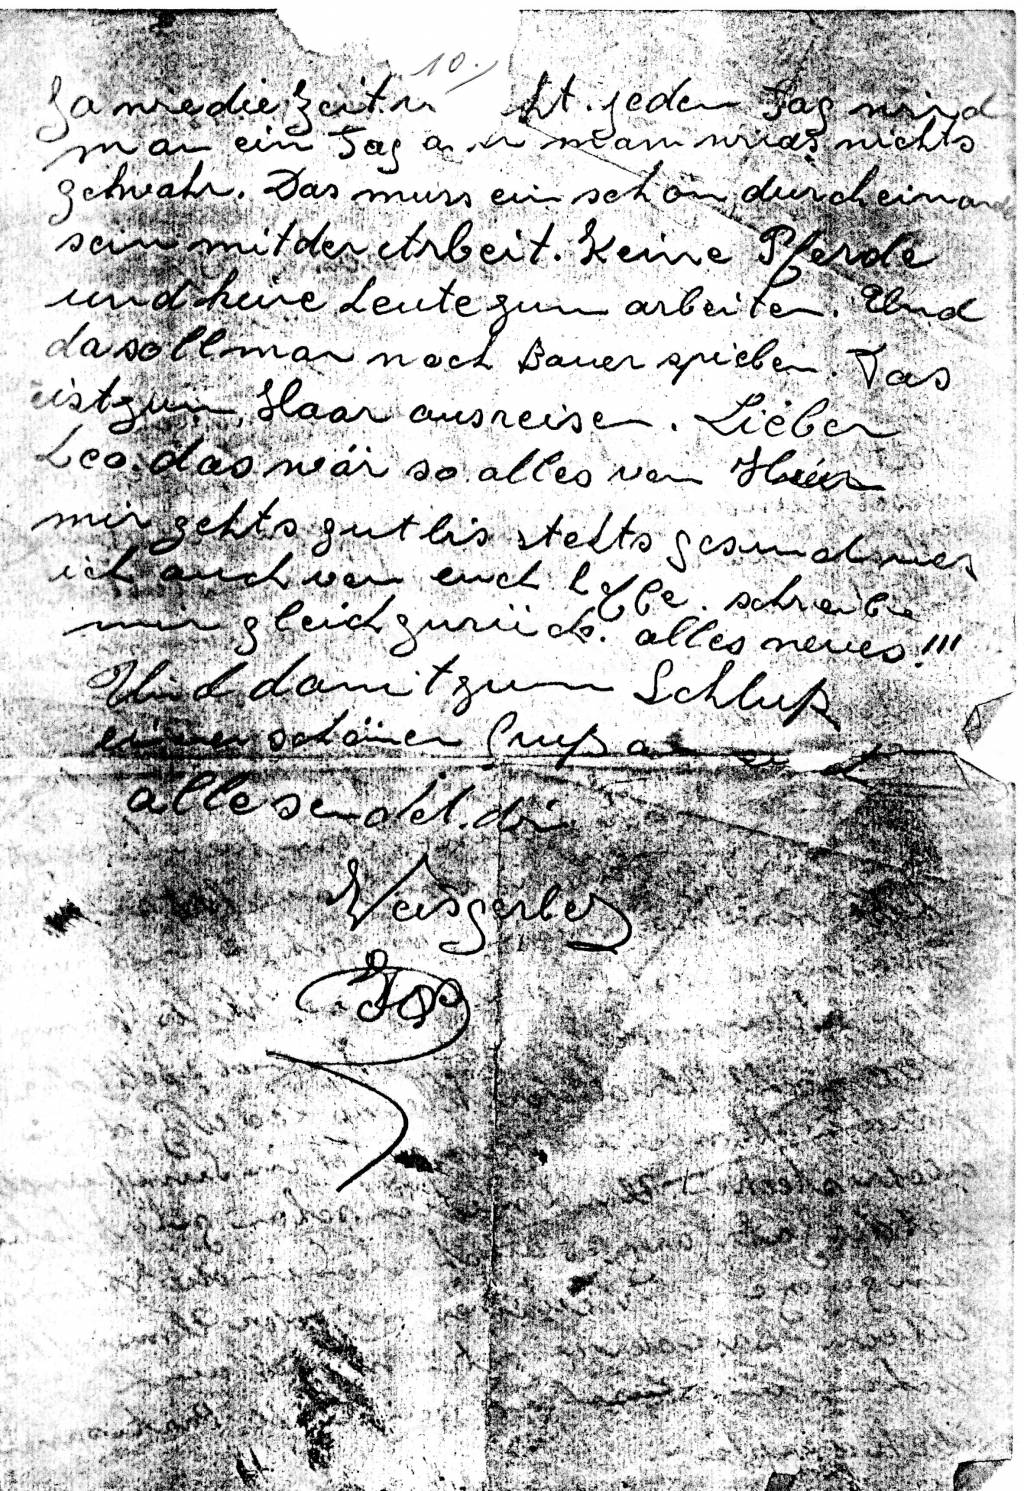 10.
Ja wie die Zeit jeden Tag wird
man ein Tag man wird's nichts
gewahr. Das muss ein schön durcheinand
sein mit der Arbeit. Keine Pferde
und keine Leute zum arbeiten. Und
da soll man noch Bauer spielen. Das
ist zum Haar ausreisen. Lieber
Leo. das wär so alles von Hier
mir gehts gut bis stehts gesund was
ich auch von euch hoffe. schreibe
mir gleich zurück. alles neues!!!
Und damit zum Schluß
einen schönen Gruß an
alle sendet. dir
Weisgerber